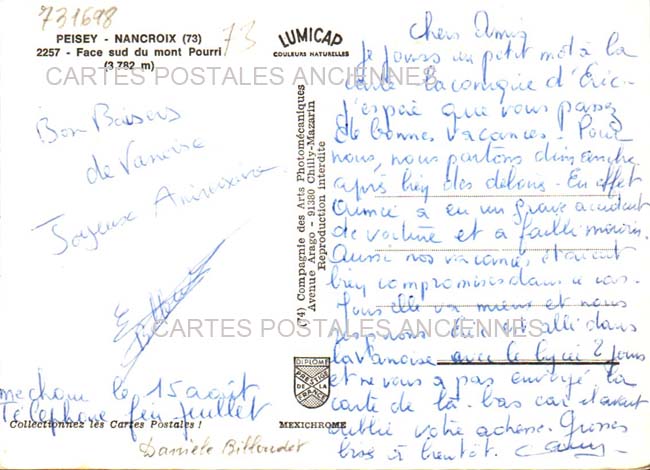 731698
73
PEISEY - NANCROIX (73)
2257 - Face sud du mont Pourri
(3 782 m)
LUMICAP
COULEURS NATURELLES
CARTES POSTALES ANCIENNES
Bon Baisers
de Vanoise
Joyeuse Anniversaire
CARTES POSTALES ANCIENNES
le 15 août
Téléphone fin juillet
Collectionnez les Cartes Postales !
Danièle Billoudet
(74) Compagnie des Arts Photomécaniques
Avenue Arago - 91380 Chilly-Mazarin
Reproduction interdite
DIPLOME
PRESTIGE
DE LA
FRANCE
MEXICHROME
Chers Amis
Je joins un petit mot à la
carte laconique d'Eric.
J'espère que vous passez
de bonnes vacances. Pour
nous, nous partons dimanche
après bien des déboires. En effet
a eu un grave accident
de voiture et a failli mourir.
Aussi nos vacances étaient
bien compromises dans ce cas.
elle va mieux et nous
est allé dans
la Vanoise avec le lycée 2 jours
et ne vous a pas envoyé la
carte de là bas car il avait
oublié votre adresse. Grosses
bises à bientôt.